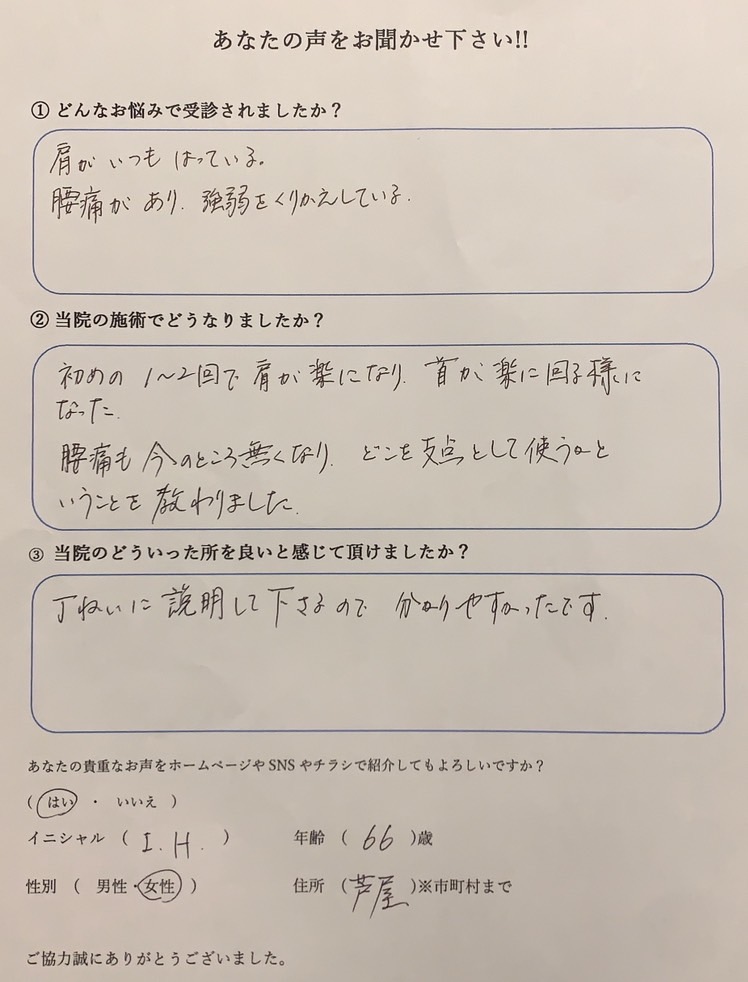 あなたの声をお聞かせ下さい!!
① どんなお悩みで受診されましたか？
肩がいつもはっている。
腰痛があり、強弱をくりかえしている。
② 当院の施術でどうなりましたか？
初めの1～2回で肩が楽になり、首が楽に回る様に
なった。
腰痛も今のところ無くなり、どこを支点として使うかと
いうことを教わりました。
③ 当院のどういった所を良いと感じて頂けましたか？
丁ねいに説明して下さるので 分かりやすかったです。
あなたの貴重なお声をホームページやSNSやチラシで紹介してもよろしいですか？
（ はい ・ いいえ ）
イニシャル （ I. H. ） 年齢 （ 66 ）歳
性別 （ 男性・女性 ） 住所 （芦屋）※市町村まで
ご協力誠にありがとうございました。